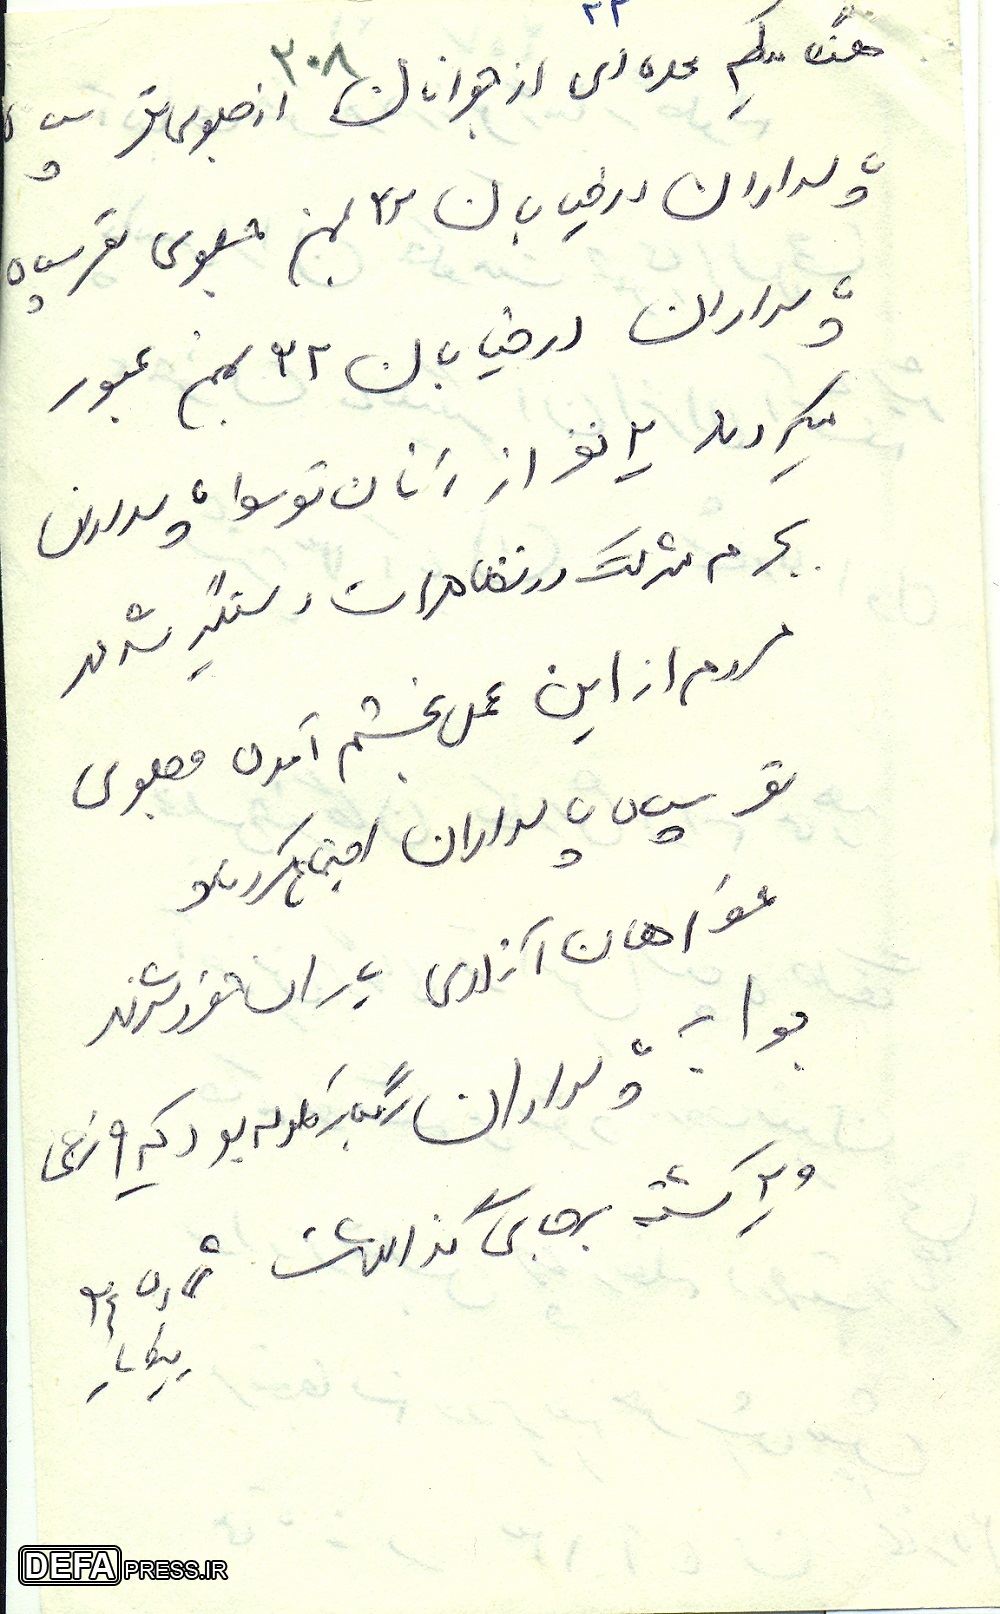 ۲۲
۳۰۸
هنگامیکه عده‌ای از جوانان از جلوی مقر سپاه
پاسداران در خیابان ۲۲ بهمن جلوی مقر سپاه
پاسداران در خیابان ۲۲ بهمن عبور
میکردند ۲ نفر از آنان توسط پاسداران
بجرم شرکت در تظاهرات دستگیر شدند
مردم از این عمل بخشم آمدن و جلوی
مقر سپاه پاسداران اجتماع کردند و
خواهان آزادی یاران خود شدند
جواب پاسداران رگبار گلوله بود که ۹ زخمی
و ۲ کشته برجای گذاشت شماره ۳۴
پیکار
DEFAPRESS.IR